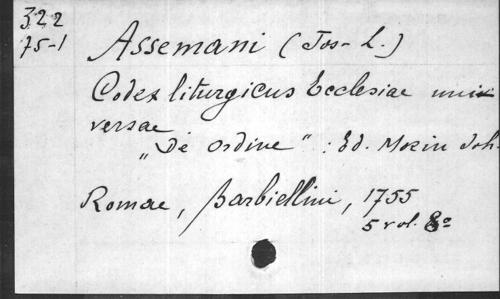 322
75-1
Assemani (Jos- L.)
Codex liturgicus Ecclesiae uni-
versae
"De ordine" : Ed. Morin Joh.
Romae, Barbiellini, 1755
5 vol. 8º